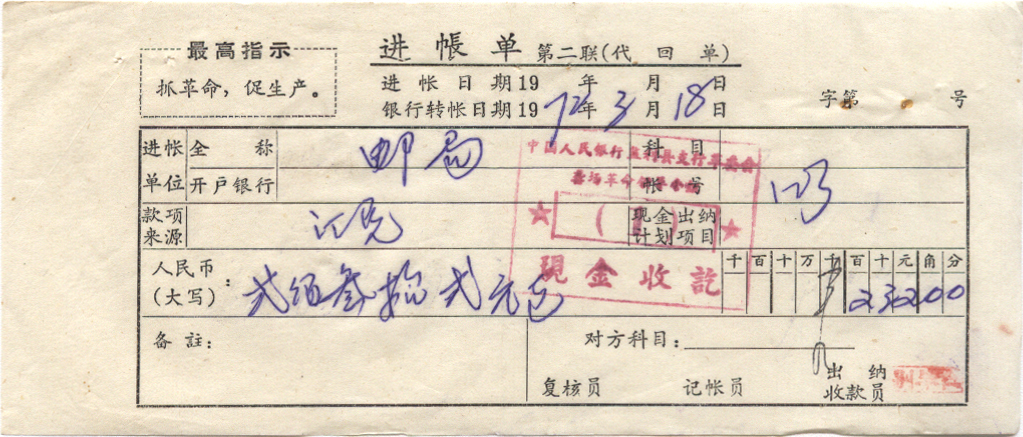 最高指示
抓革命，促生产。
进帐单 第二联（代回单）
进帐日期19 年 月 日
银行转帐日期1972年3月18日
字第 号
进帐单位 全称 邮局 科目
开户银行 帐号
款项来源 汇兑 现金出纳计划项目
人民币（大写）： 贰佰叁拾贰元 千百十万千百十元角分
23200
中国人民银行监利县支行革委会
现金收讫
备註： 对方科目：
复核员 记帐员 出纳收款员